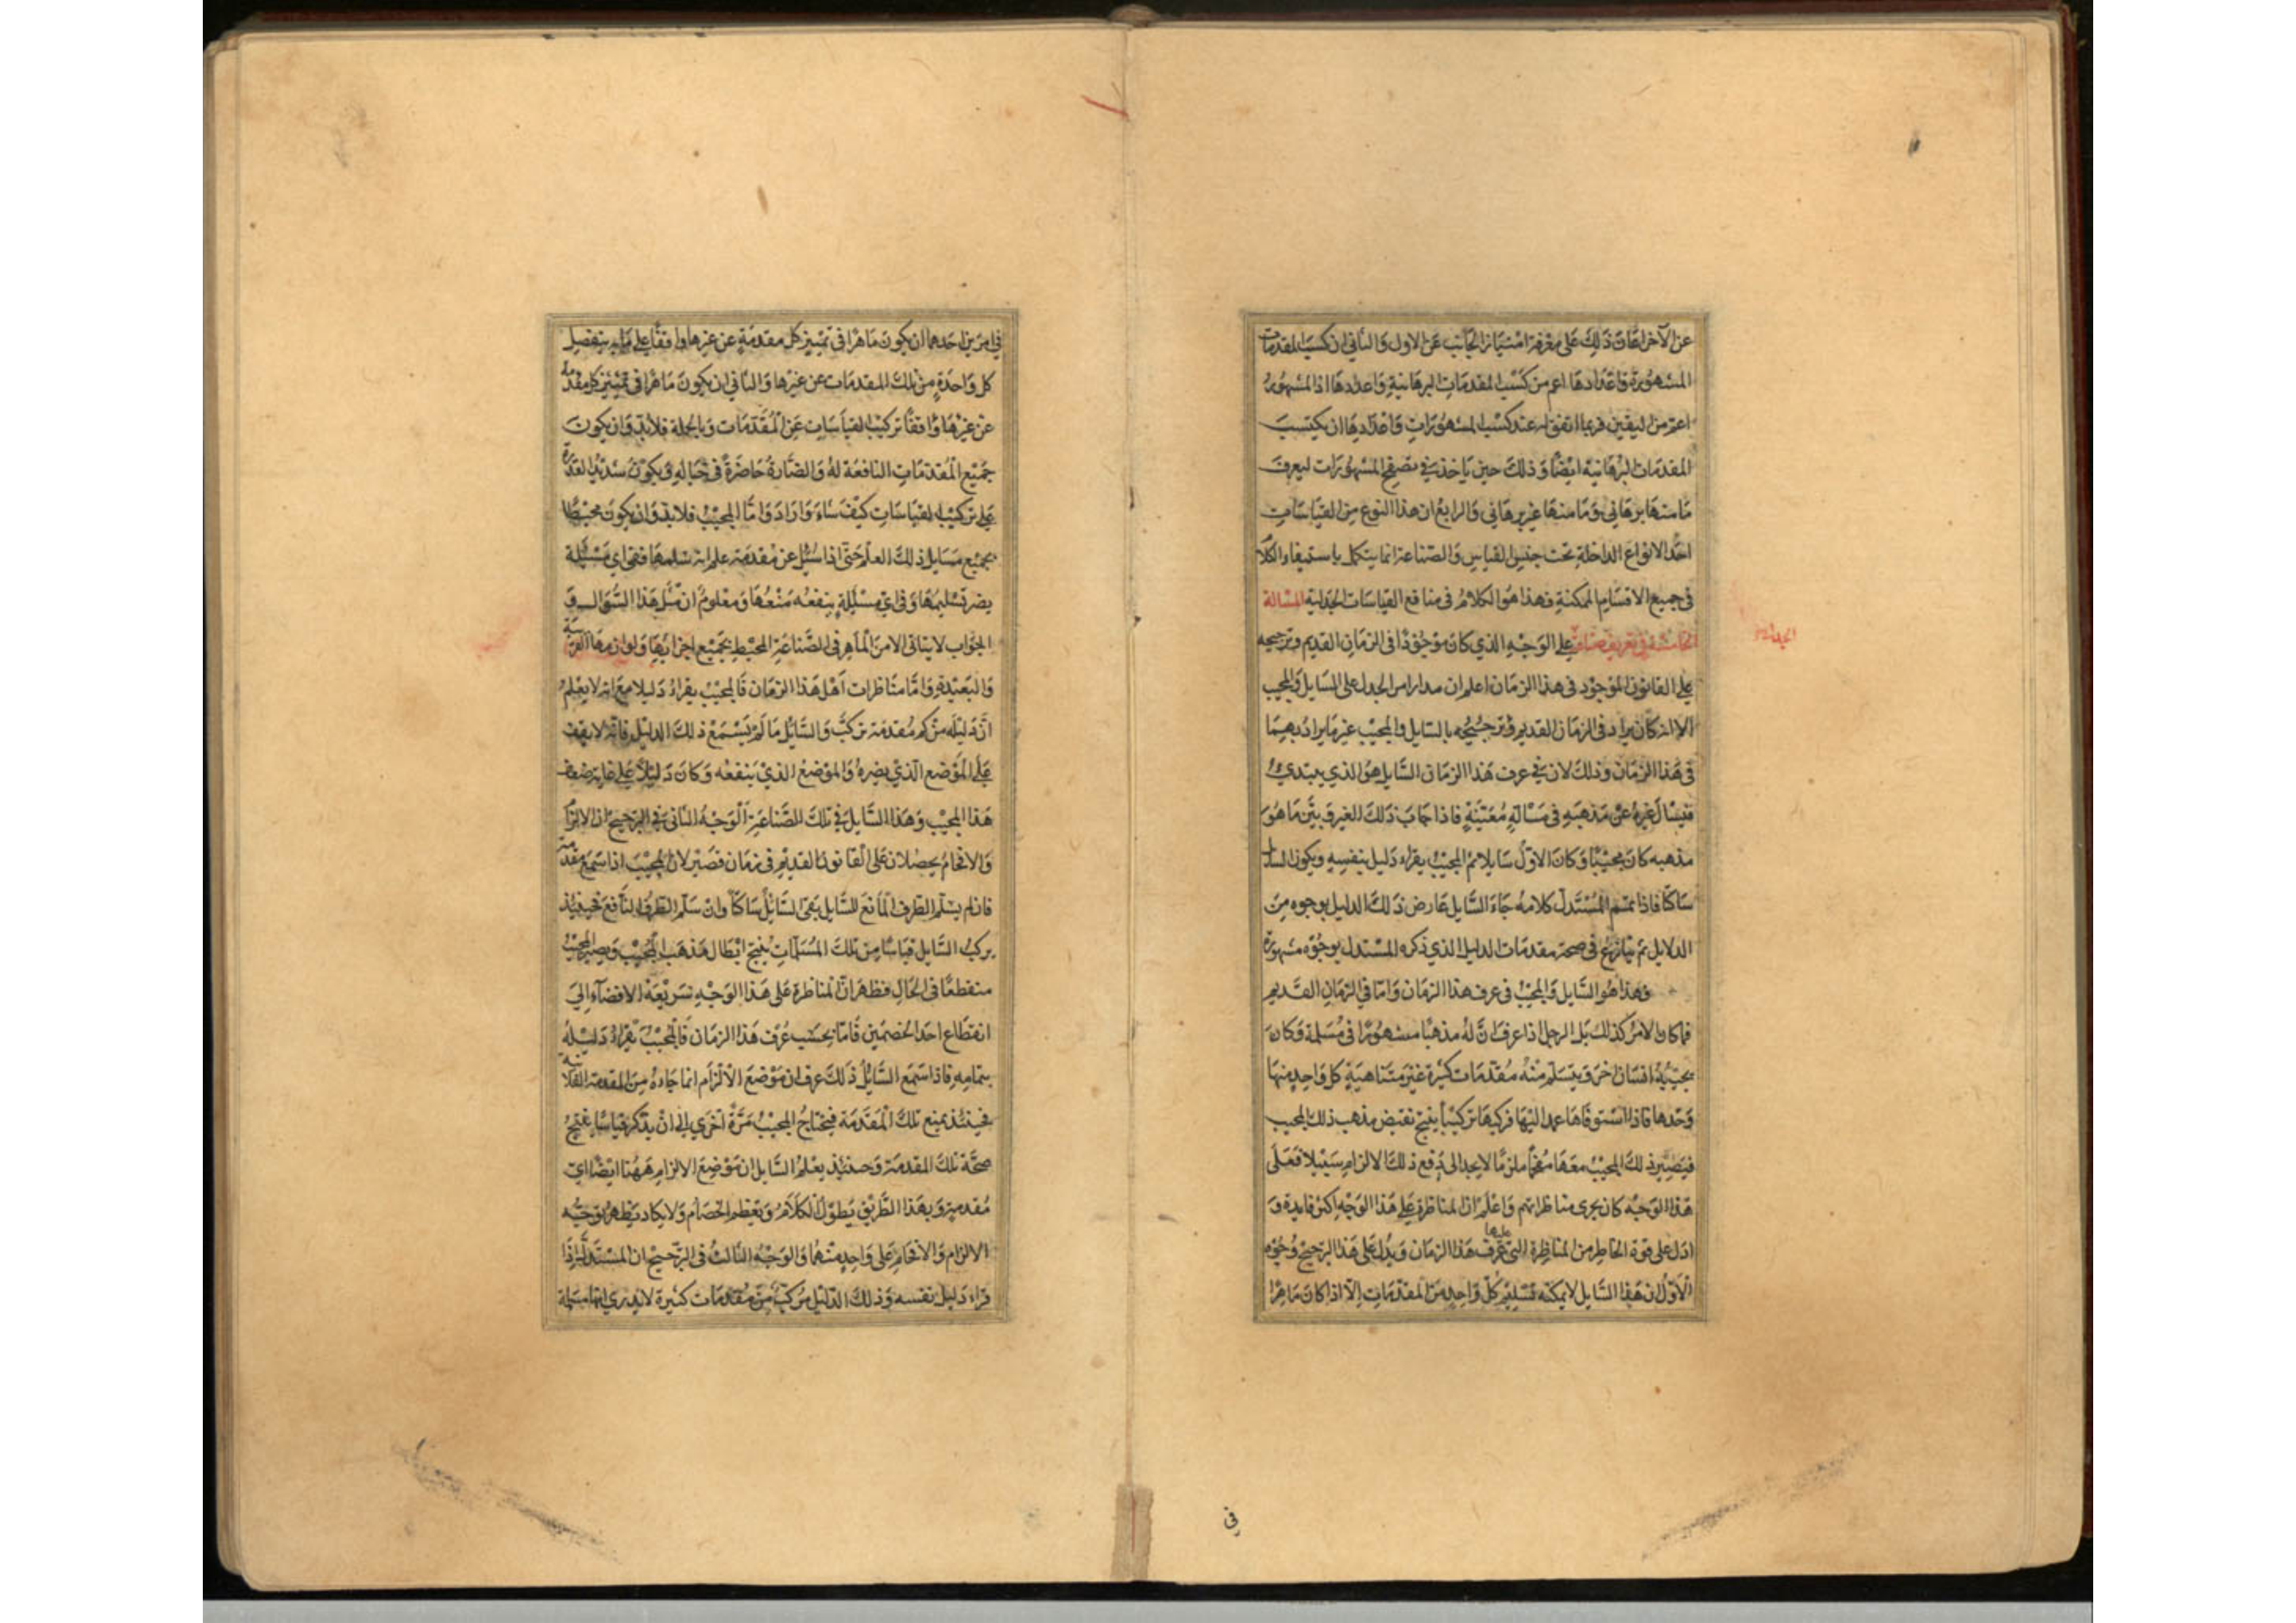 عن الآخر اعان ذلك على معرفة امتياز الجانب عن الاول والثاني ان كسب المقدمات
المشهورة واعدادها اعم من كسب المقدمات البرهانية واعدادها اذ المشهور
اعم من اليقين فربما اتفق له عند كسب المشهورات واعدادها ان يكتسب
المقدمات البرهانيه ايضا وذلك حين ياخذ في تصفح المشهورات ليعرف
ما منها برهاني وما منها غير برهاني والرابع ان هذا النوع من القياسات
احد الانواع الداخلة تحت جنس القياس والصناعة انما يتكمل باستيفاء الكلا
في جميع الاقسام الممكنة فهذا هو الكلام في منافع القياسات الجدلية المسالة
الخامسة في تعريف صناعة على الوجه الذي كان موجودا في الزمان القديم وترجيحه
الجدل
على القانون الموجود في هذا الزمان اعلم ان مدار امر الجدل على السايل والمجيب
الا انه كان يراد في الزمان القديم بالسايل والمجيب غير ما يراد بهما
في هذا الزمان وذلك لان في عرف هذا الزمان السايل هو الذي يبتدئ
فيسال غيره عن مذهبه في مسالة معينة فاذا جاب ذلك الغير وبين ما هو
مذهبه كان مجيبا وكان الاول سايلا ثم المجيب يقراء دليل بنفسه ويكون السايل
ساكتا فاذا تمم المستدل كلامه جاء السايل عارض ذلك الدليل بوجوه من
الدلايل ثم ينازع في صحة مقدمات الدليل الذي ذكره المستدل بوجوه مشهورة
فهذا هو السايل والمجيب في عرف هذا الزمان واما في الزمان القديم
فما كان الامر كذلك بل الرجل اذا عرف ان له مذهبا مشهورا في مسلة وكان
يجيبه انسان اخر ويتسلم منه مقدمات كثيرة غير متناهية كل واحد منها
وحدها فاذا استوفاها عمد اليها فركبها تركيبا ينتج نقيض مذهب ذلك المجيب
فيصير ذلك المجيب معها مفحما ملزما لا يجد الى دفع ذلك الالزام سبيلا فعلى
هذا الوجه كان يجرى مناظراتهم واعلم ان المناظرة على هذا الوجه اكثر فايدة و
ادل على قوة الخاطر من المناظرة التي عليها عرف هذا الزمان ويدل على هذا الترجيح وجوه
الاول ان هذا السايل لا يمكنه تسليم كل واحد من المقدمات الا اذا كان ماهرا
في
في امرين احدهما ان يكون ماهرا في تمييز كل مقدمة عن غيرها واقفا على ما به ينفصل
كل واحدة من تلك المقدمات عن غيرها والثاني ان يكون ماهرا في تمييز كل مقدمة
عن غيرها واقفا تركيب القياسات عن المقدمات وبالجملة فلابد وان يكون
جميع المقدمات النافعة له والضارة حاضرة في خياله ويكون شديد القدرة
على تركيب القياسات كيف شاء واراد واما المجيب فلابد وان يكون محيطا
بجميع مسايل ذلك العلم حتى اذا سئل عن مقدمة علم انه تسلمها ففي اي مسئلة
يضر تسليمها وفي اي مسئلة ينفعه منعها ومعلوم ان مثل هذا السؤال و
الجواب لا يتاتى الا من الماهر في الصناعة المحيط بجميع اجزائها ولوازمها القريبة
والبعيدة واما مناظرات اهل هذا الزمان فالمجيب يقراء دليلا مع انه لا يعلم
ان دليله من كم مقدمة تركب والسايل ما لم يسمع ذلك الدليل فانه لا يقف
على الموضع الذي يضره والموضع الذي ينفعه وكان دليلا على غاية ضعف
هذا المجيب وهذا السايل في تلك الصناعة الوجه الثاني في الترجيح ان الالزام
والافحام يحصلان على القانون القديم في زمان قصير لان المجيب اذا سمع مقدمة
فان لم يسلم الطرف المانع للسايل بقى السايل ساكتا وان سلم الطرف النافع فحينئذ
يركب السايل قياسا من تلك المسلمات ينتج ابطال مذهب المجيب ويصير المجيب
منقطعا في الحال فظهر ان المناظرة على هذا الوجه سريعة الافضاء الى
انقطاع احد الخصمين فاما بحسب عرف هذا الزمان فالمجيب يقراء دليله
بتمامه فاذا سمع السايل ذلك عرف ان موضع الالزام انما جاءه من المقدمة الفلانية
فحينئذ يمنع تلك المقدمة فيحتاج المجيب مرة اخرى الى ان يذكر قياسا ينتج
صحة تلك المقدمة وحينئذ يعلم السايل ان موضع الالزام ههنا ايضا اي
مقدمة وبهذا الطريق يطول الكلام ويعظم الخصام ولا يكاد يظهر توجيه
الالزام والافحام على واحد منهما والوجه الثالث في الترجيح ان المستدل اذا
قراء دليل نفسه وذلك الدليل مركب من مقدمات كثيرة لا يدري انها مسلمة